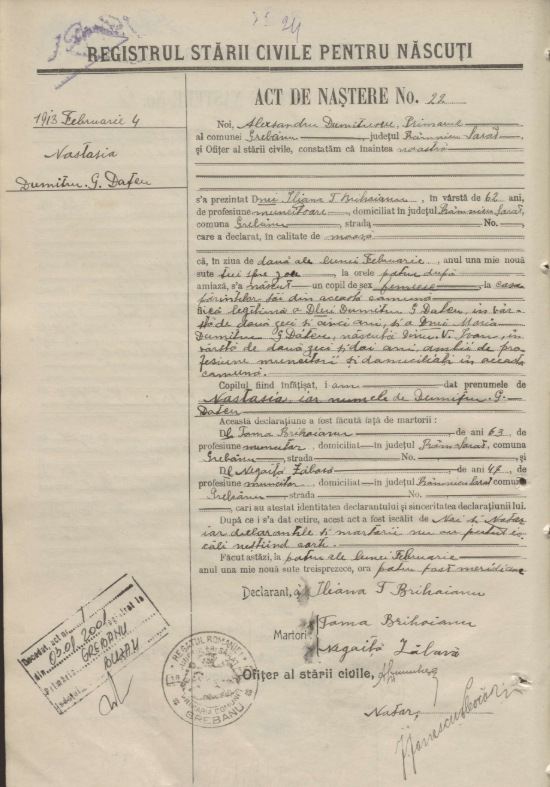 24
REGISTRUL STĂRII CIVILE PENTRU NĂSCUȚI
1913 Februarie 4
Nastasia
Dumitru G. Datcu
ACT DE NAȘTERE No. 22
Noi, Alexandru Dumitrescu, Primarul
al comunei Grebănu, județul Râmnicu Sărat
și Ofițer al stării civile, constatăm că înaintea noastră
s'a prezintat Dnei Iliana T. Brihoianu, în vârstă de 62 ani,
de profesiune muncitoare, domiciliat în județul Râmnicu Sărat,
comuna Grebănu, strada No.
care a declarat, în calitate de moașă
că, în ziua de două ale lunei Februarie, anul una mie nouă
sute trei spre zece, la orele patru după
amiază, s'a născut un copil de sex femeesc, la casa
părinților săi din această comună
fiică legitimă a Dlui Dumitru G. Datcu, în vâr-
stă de două zeci și cinci ani, și a Dnei Maria
Dumitru G. Datcu, născută Dinu V. Ioan, în
vârstă de două zeci și doi ani, ambii de pro-
fesiune muncitori și domiciliați în această
comună.
Copilul fiind înfățișat, i am dat prenumele de
Nastasia, iar numele de Dumitru G.
Datcu
Această declarațiune a fost făcută față de martorii:
Dl. Toma Brihoianu, de ani 63, de
profesiune muncitor, domiciliat în județul Râm. Sărat, comuna
Grebănu, strada No. , și
Dl. Negoiță Zăbavă, de ani 47, de
profesiune muncitor, domiciliat în județul Râmnicu Sărat comuna
Grebănu, strada No.
, cari au atestat identitatea declarantului și sinceritatea declarațiunii lui.
După ce i s'a dat cetire, acest act a fost iscălit de Noi și Notar
iar declarantele și martorii nu au putut is-
căli neștiind carte.
Făcut astăzi, la patru ale lunei Februarie
anul una mie nouă sute treisprezece, ora patru post meridiane
Declarant, Iliana T Brihoianu
Martori Toma Brihoianu
Negoiță Zăbavă
Ofițer al stării civile,
Notar,
Decedat, act nr.
din 03.01.2001
Primăria GREBĂNU
Județul BUZĂU
REGATUL ROMANIEI
GREBANU